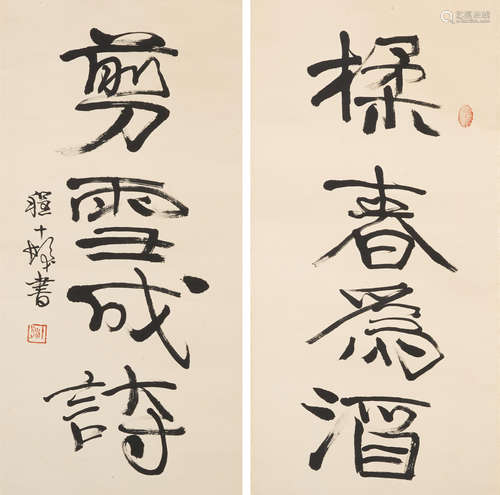 揉春為酒
剪雪成詩
程十髮書